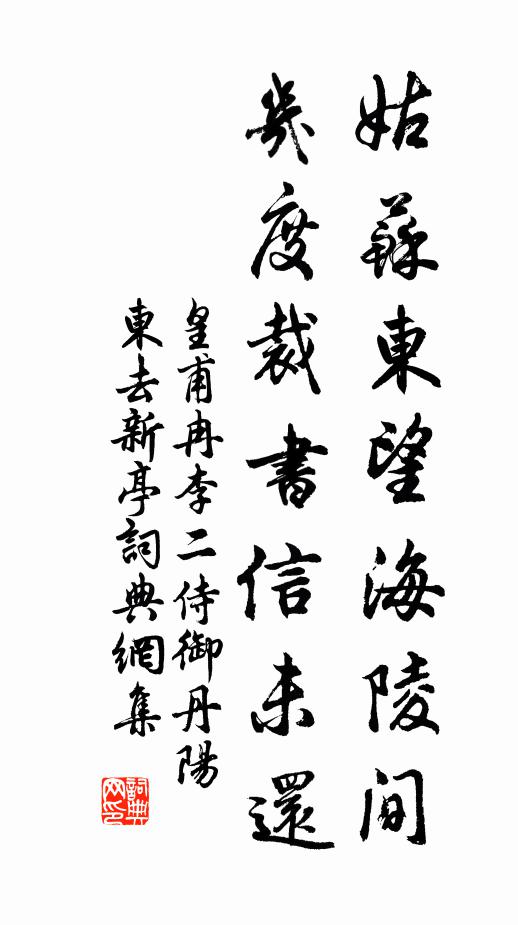 姑蘇東望海陵间
幾度裁書信未還
皇甫冉李二侍御丹陽
東去新亭詞典網集
詞典网印